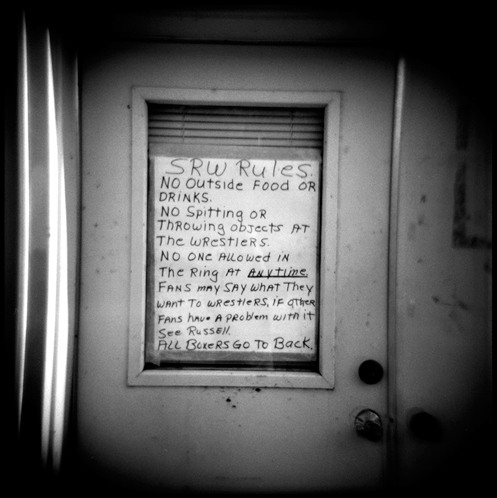 SRW RULES.
NO OUtSide FOOD OR
DRINKS.
NO SPitting OR
THROWING OBJECTS AT
THE WRESTLERS.
NO ONE ALLOWED IN
THE RING AT ANYTIME.
FANS MAY SAY WHAT THEY
WANT TO WRESTLERS, IF OTHER
FANS HAVE A PROBLEM WITH IT
SEE RUSSELL.
ALL BOXERS GO TO BACK.